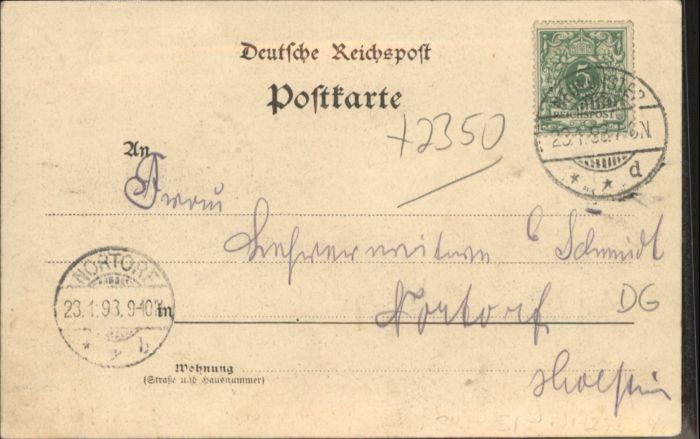 Deutsche Reichspost
Postkarte
5
REICHSPOST
23.1.93. 7-8N
* * d
+2350
An
Frau
Lehrerwitwe C Schmidt
NORTORF
23.1.93. 9-10N
* * b
in
Nortorf
DG
Wohnung
(Straße und Hausnummer)
Holstein